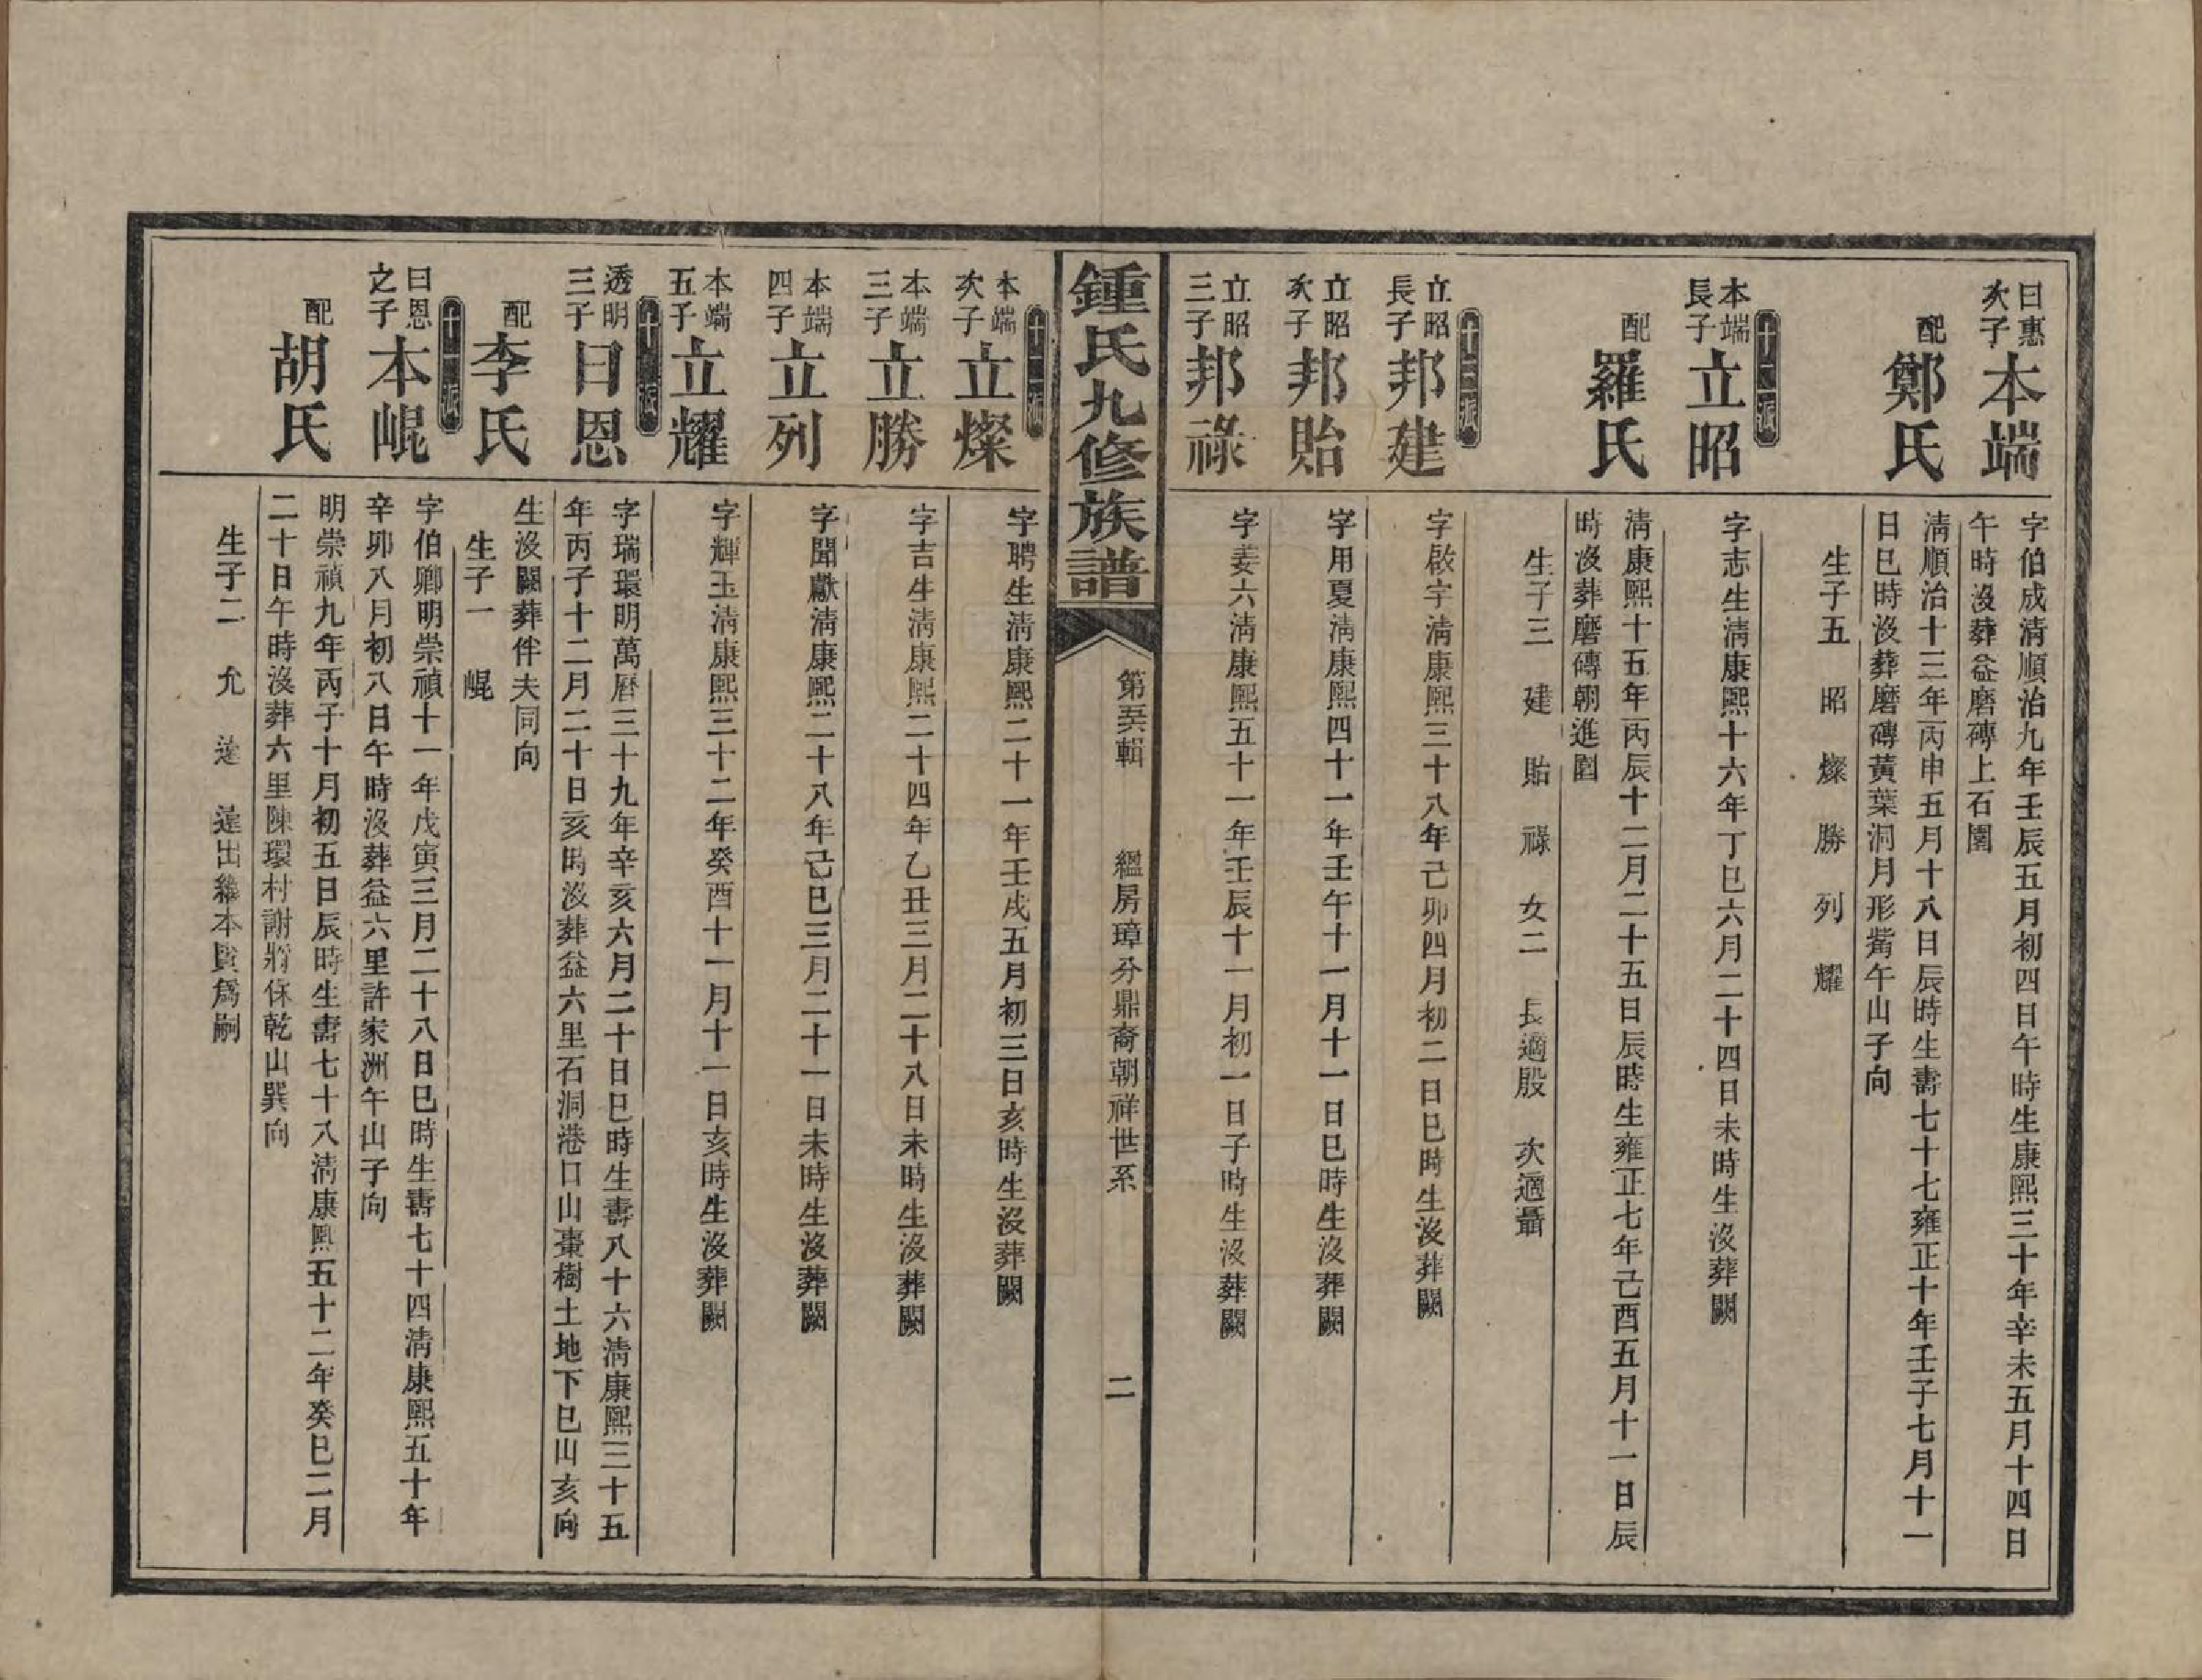 曰惠
次子
本端
字伯成清順治九年壬辰五月初四日午時生康熙三十年辛未五月十四日
午時沒葬益磨磚上石圍
配
鄭氏
清順治十三年丙申五月十八日辰時生壽七十七雍正十年壬子七月十一
日巳時沒葬磨磚黃葉洞月形嘴午山子向
生子五 昭 燦 勝 列 耀
十二派
本端
長子
立昭
字志生清康熙十六年丁巳六月二十四日未時生沒葬闕
配
羅氏
清康熙十五年丙辰十二月二十五日辰時生雍正七年己酉五月十一日辰
時沒葬磨磚朝進園
生子三 建 貽 祿 女二 長適殷 次適聶
十三派
立昭
長子
邦建
字啟宇清康熙三十八年己卯四月初二日巳時生沒葬闕
立昭
次子
邦貽
字用夏清康熙四十一年壬午十一月十一日巳時生沒葬闕
立昭
三子
邦祿
字姜六清康熙五十一年壬辰十一月初一日子時生沒葬闕
鍾氏九修族譜
第五輯
縕房璋分鼎裔朝祥世系
二
十二派
本端
次子
立燦
字聘生清康熙二十一年壬戌五月初三日亥時生沒葬闕
本端
三子
立勝
字吉生清康熙二十四年乙丑三月二十八日未時生沒葬闕
本端
四子
立列
字聞獻清康熙二十八年己巳三月二十一日未時生沒葬闕
本端
五子
立耀
字輝玉清康熙三十二年癸酉十一月十一日亥時生沒葬闕
十派
透明
三子
曰恩
字瑞環明萬曆三十九年辛亥六月二十日巳時生壽八十六清康熙三十五
年丙子十二月二十日亥時沒葬益六里石洞港口山棗樹土地下巳山亥向
配
李氏
生沒闕葬伴夫同向
生子一 崐
十一派
曰恩
之子
本崐
字伯卿明崇禎十一年戊寅三月二十八日巳時生壽七十四清康熙五十年
辛卯八月初八日午時沒葬益六里許家洲午山子向
配
胡氏
明崇禎九年丙子十月初五日辰時生壽七十八清康熙五十二年癸巳二月
二十日午時沒葬六里陳環村謝將保乾山巽向
生子二 允 達 達出繼本賢為嗣